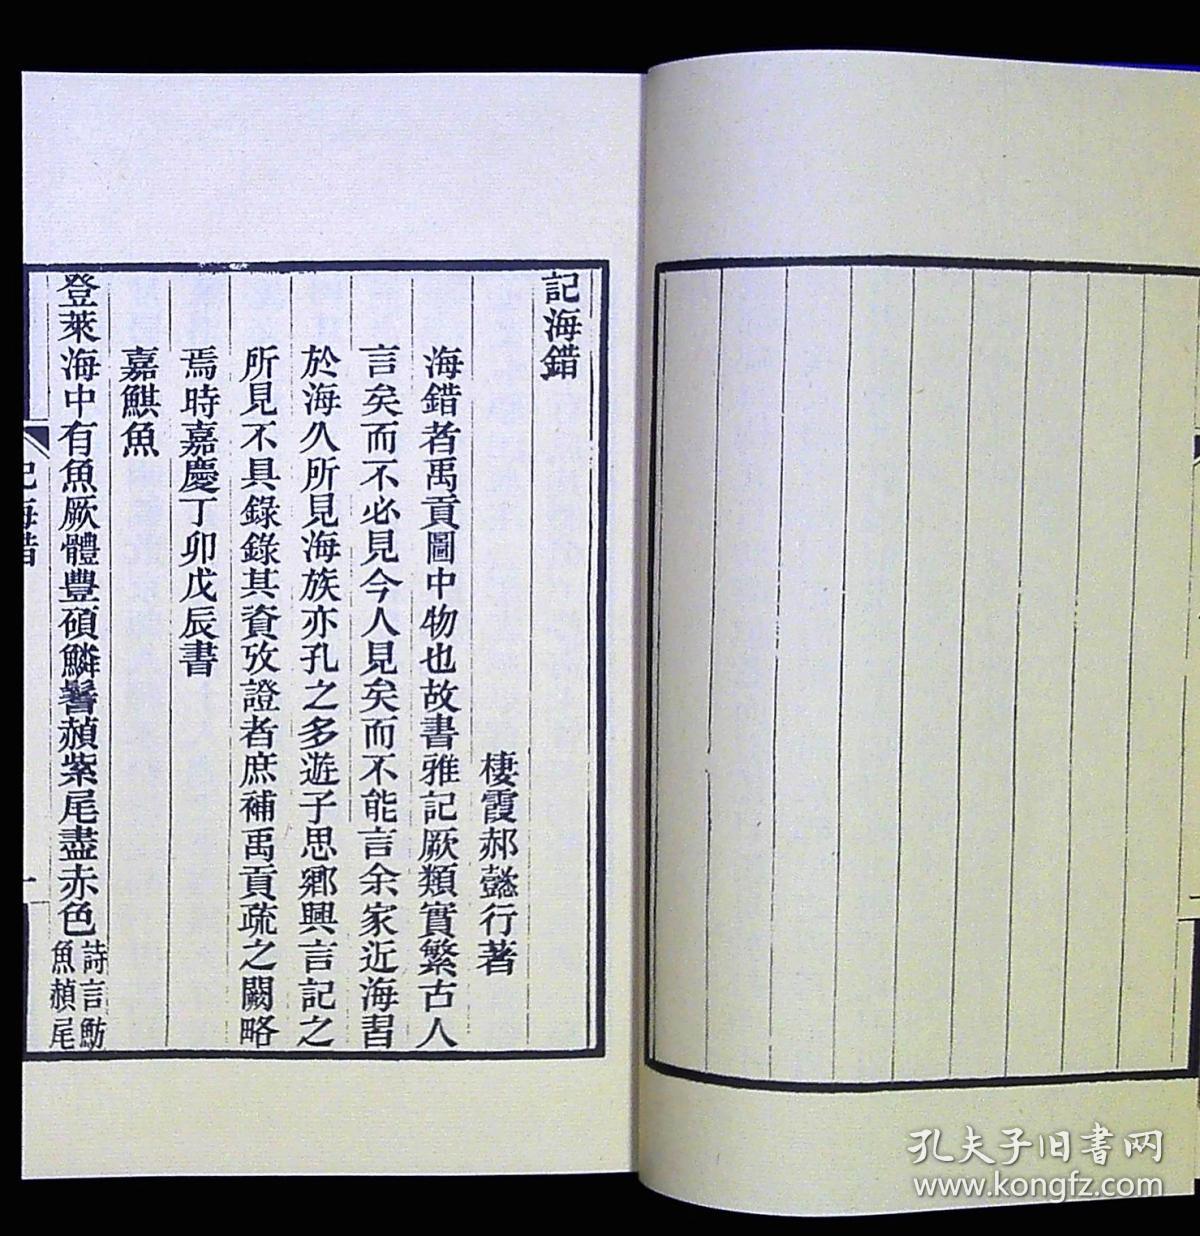 記海錯
棲霞郝懿行著
海錯者禹貢圖中物也故書雅記厥類實繁古人
言矣而不必見今人見矣而不能言余家近海習
於海久所見海族亦孔之多遊子思鄉興言記之
所見不具錄錄其資攷證者庶補禹貢疏之闕略
焉時嘉慶丁卯戊辰書
嘉鯕魚
登萊海中有魚厥體豐碩鱗鬐赬紫尾盡赤色
詩言魴
魚赬尾
記海錯
一
孔夫子旧書网
www.kongfz.com